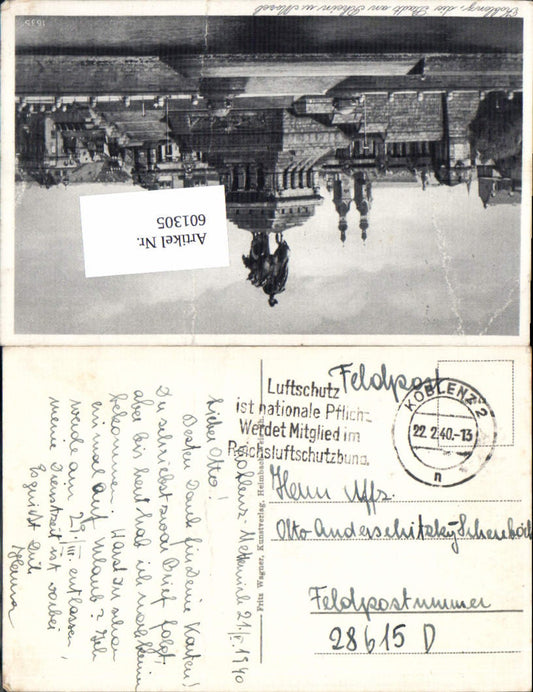 Koblenz, die Stadt am Rhein u. Mosel
1635
Artikel Nr.
601305
Feldpost
Luftschutz
ist nationale Pflicht
Werdet Mitglied im
Reichsluftschutzbund
KOBLENZ 2
22.2.40.-13
n
Herrn Uffz.
Otto
Feldpostnummer
28615 D
Fritz Wagner, Kunstverlag,
Koblenz-Metternich 21./2. 1940
Lieber Otto!
Besten Dank für Deine Karten!
Du schriebst zwar Brief folgt,
aber bis heut hab ich noch kein
bekommen. Warst Du schon
ein mal auf Urlaub? Ich
werde am 29. III. entlassen,
meine Dienstzeit ist vorbei
Es grüßt Dich